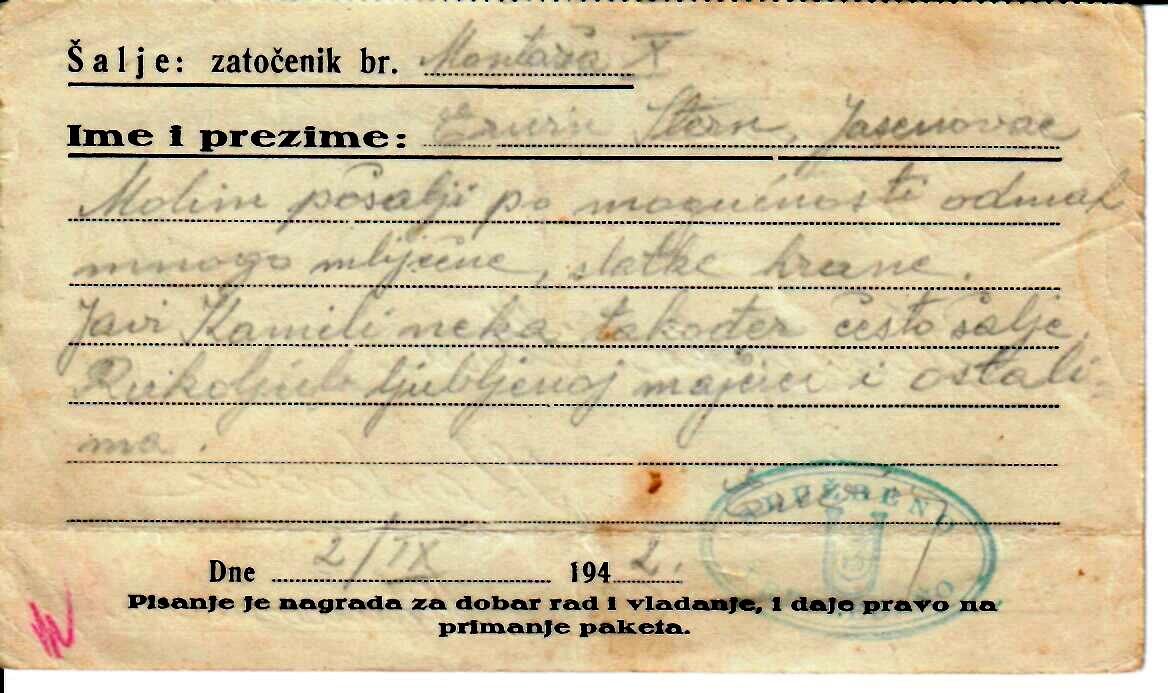 Šalje: zatočenik br. Montaža X
Ime i prezime: Erwin Stern, Jasenovac
Molim pošalji po mogućnosti odmah
mnogo mliječne, slatke hrane.
Javi Kamili neka također često šalje.
Rukoljub ljubljenoj majčici i ostali-
ma.
Dne 2/IX 1942.
Pisanje je nagrada za dobar rad i vladanje, i daje pravo na
primanje paketa.